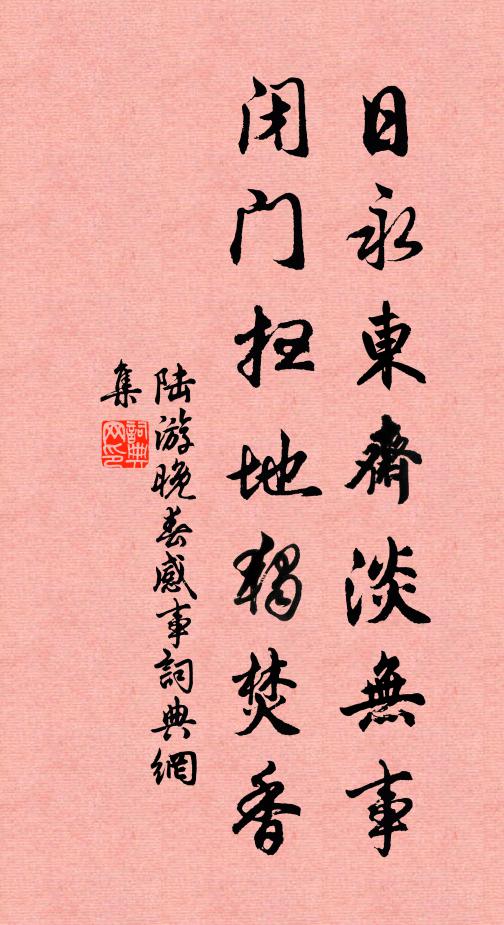 日永東齋淡無事
闭门扫地獨焚香
陆游晚春感事詞典網
集
詞典网印